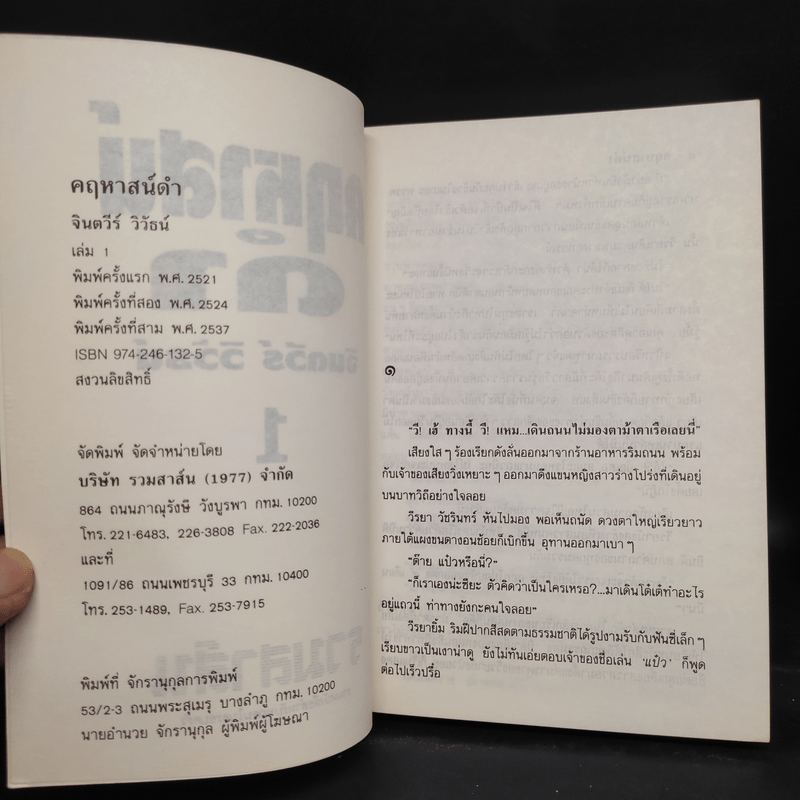 คฤหาสน์ดำ
จินตวีร์ วิวัธน์
เล่ม 1
พิมพ์ครั้งแรก พ.ศ. 2521
พิมพ์ครั้งที่สอง พ.ศ. 2524
พิมพ์ครั้งที่สาม พ.ศ. 2537
ISBN 974-246-132-5
สงวนลิขสิทธิ์
จัดพิมพ์ จัดจำหน่ายโดย
บริษัท รวมสาส์น (1977) จำกัด
864 ถนนภาณุรังษี วังบูรพา กทม. 10200
โทร. 221-6483, 226-3808 Fax. 222-2036
และที่
1091/86 ถนนเพชรบุรี 33 กทม. 10400
โทร. 253-1489, Fax. 253-7915
พิมพ์ที่ จักรานุกูลการพิมพ์
53/2-3 ถนนพระสุเมรุ บางลำภู กทม. 10200
นายอำนวย จักรานุกูล ผู้พิมพ์ผู้โฆษณา
๑
“วี! เฮ้ ทางนี้ วี! แหม...เดินถนนไม่มองตาม้าตาเรือเลยนี่”
เสียงใส ๆ ร้องเรียกดังลั่นออกมาจากร้านอาหารริมถนน พร้อม
กับเจ้าของเสียงวิ่งเหยาะ ๆ ออกมาดึงแขนหญิงสาวร่างโปร่งที่เดินอยู่
บนบาทวิถีอย่างใจลอย
วีรยา วัชรินทร์ หันไปมอง พอเห็นถนัด ดวงตาใหญ่เรียวยาว
ภายใต้แผงขนตางอนช้อยก็เบิกขึ้น อุทานออกมาเบา ๆ
“ต๊าย แป๋วหรือนี่?”
“ก็เราเองน่ะซียะ ตัวคิดว่าเป็นใครเหรอ?...มาเดินโต๋เต๋ทำอะไร
อยู่แถวนี้ ท่าทางยังกะคนใจลอย”
วีรยายิ้ม ริมฝีปากสีสดตามธรรมชาติได้รูปงามรับกับฟันซี่เล็ก ๆ
เรียบขาวเป็นเงาน่าดู ยังไม่ทันเอ่ยตอบเจ้าของชื่อเล่น ‘แป๋ว’ ก็พูด
ต่อไปเร็วปรื๋อ